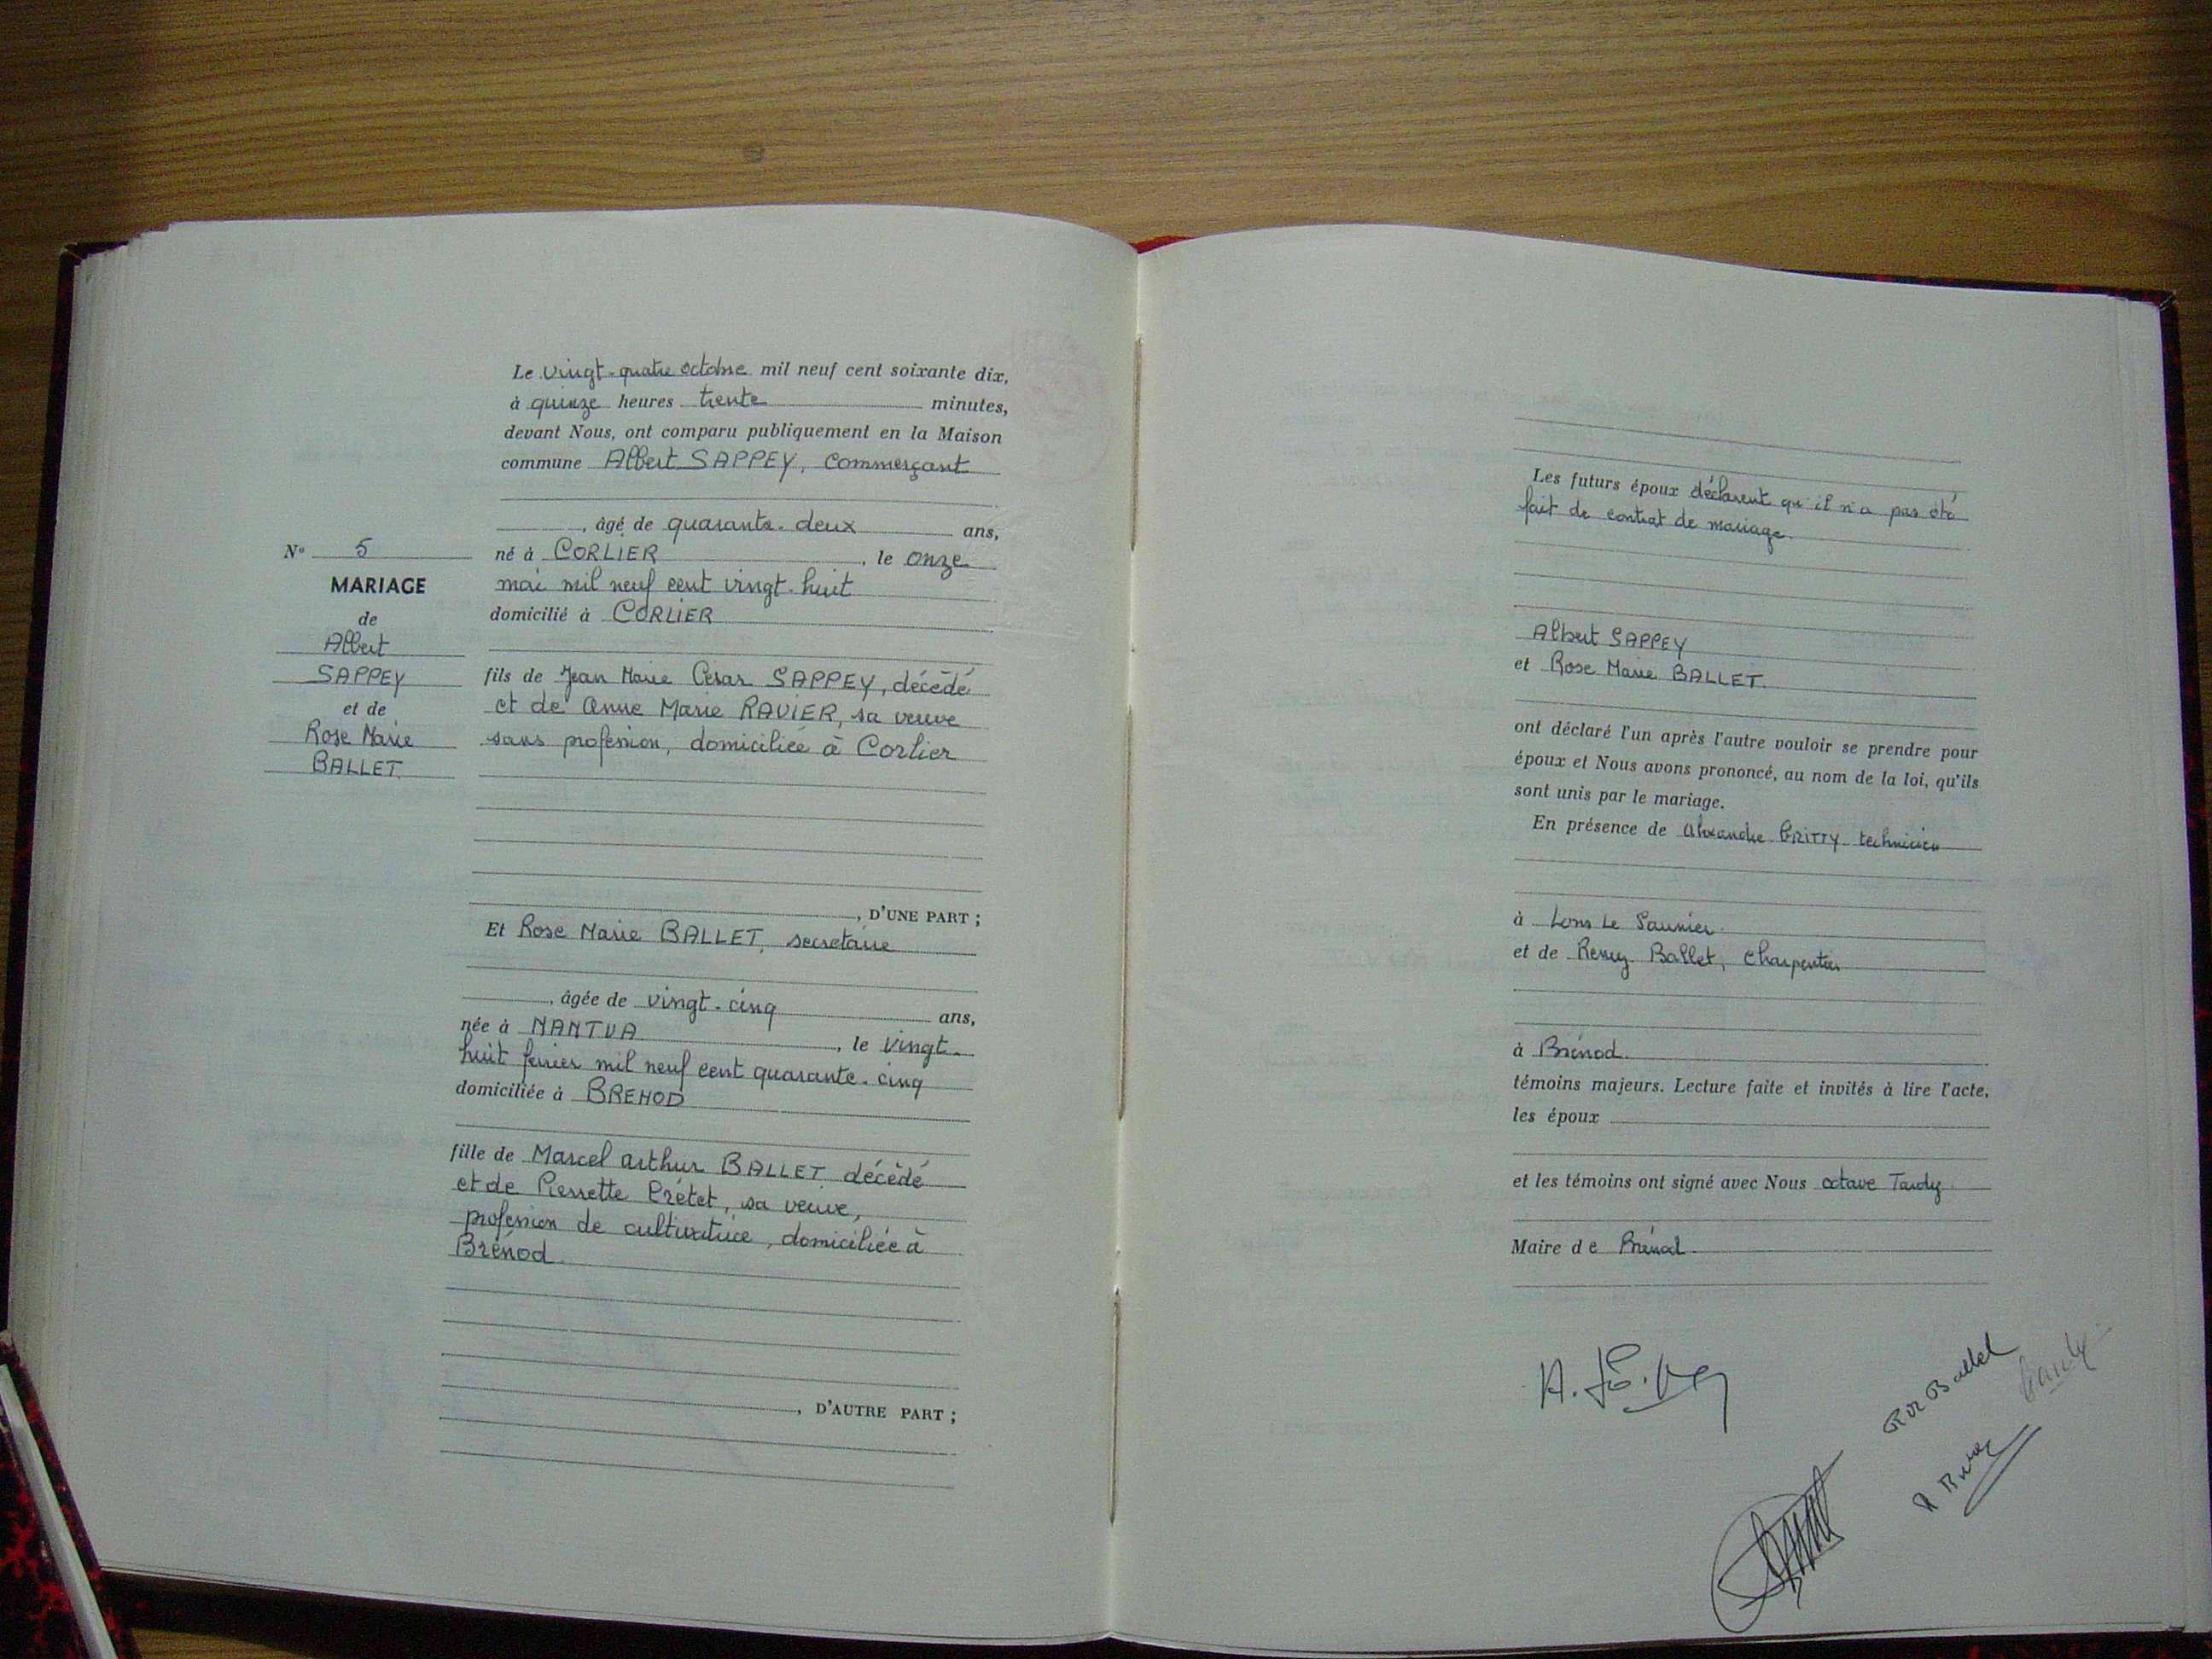 Le vingt-quatre octobre mil neuf cent soixante dix,
à quinze heures trente minutes,
devant Nous, ont comparu publiquement en la Maison
commune Albert SAPPEY, commerçant
, âgé de quarante-deux ans,
né à CORLIER, le onze
mai mil neuf cent vingt-huit
domicilié à CORLIER
fils de Jean Marie César SAPPEY, décédé
et de Anne Marie RAVIER, sa veuve
sans profession, domiciliée à Corlier
, D'UNE PART ;
Et Rose Marie BALLET, secrétaire
, âgée de vingt-cinq ans,
née à NANTUA, le vingt-
huit février mil neuf cent quarante-cinq
domiciliée à BRENOD
fille de Marcel Arthur BALLET décédé
et de Pierrette Prétet, sa veuve,
profession de cultivatrice, domiciliée à
Brénod.
, D'AUTRE PART ;
N° 5
MARIAGE
de
Albert
SAPPEY
et de
Rose Marie
BALLET
Les futurs époux déclarent qu'il n'a pas été
fait de contrat de mariage.
Albert SAPPEY
et Rose Marie BALLET.
ont déclaré l'un après l'autre vouloir se prendre pour
époux et Nous avons prononcé, au nom de la loi, qu'ils
sont unis par le mariage.
En présence de Alexandre technicien
à Lons Le Saunier
et de Remy Ballet, charpentier
à Brénod.
témoins majeurs. Lecture faite et invités à lire l'acte,
les époux
et les témoins ont signé avec Nous octave Tardy
Maire de Brénod
Ballet
Tardy